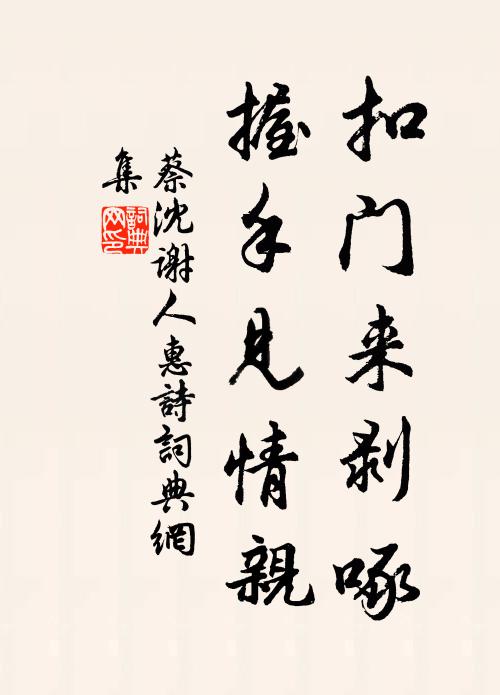 扣门来剥啄
握手見情親
蔡沈谢人惠詩詞典網
集
詞典网印